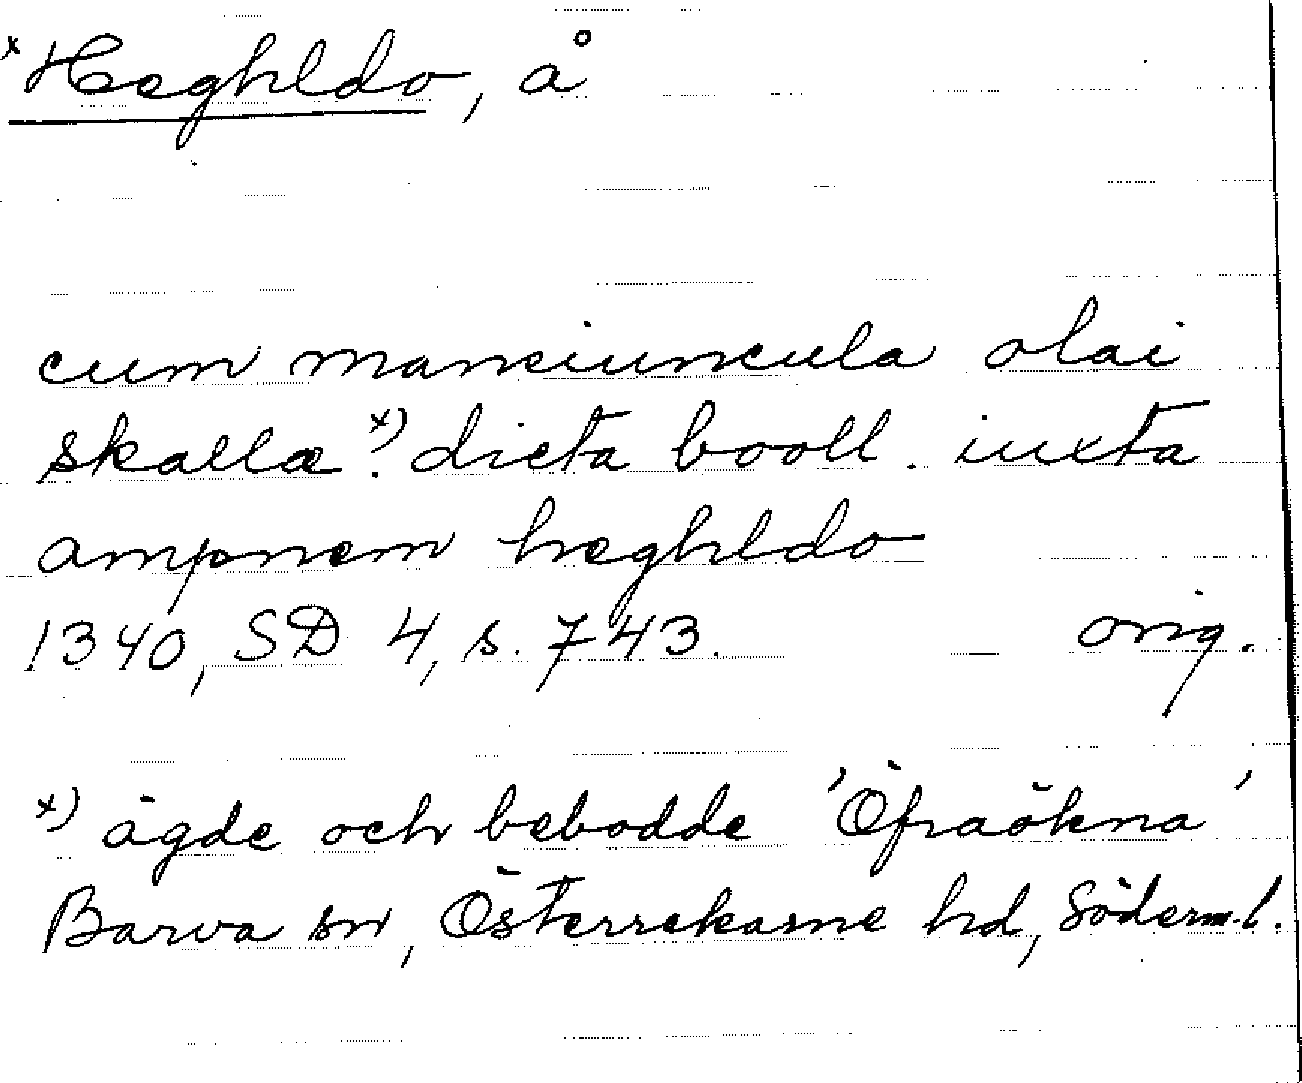 x Heghldo, å
cum manciuncula olai
skallæ x). dicta booll. iuxta
ampnem heghldo
1340, SD 4, s. 743. orig.
x) ägde och bebodde 'Öfraökna'
Barva sn, Österrekarne hd, Söderm.l.